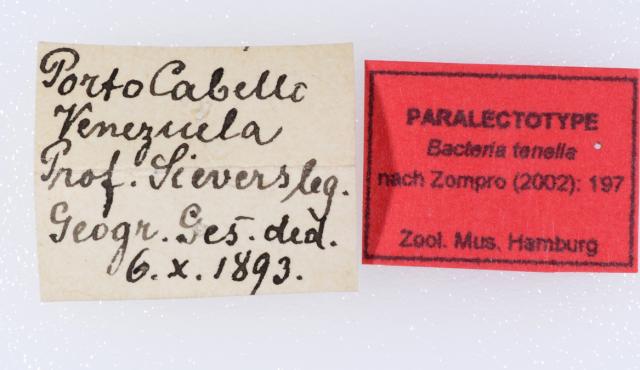 Porto Cabello
Venezuela
Prof. Sievers leg.
Geogr. Ges. ded.
6. x. 1893.
PARALECTOTYPE
Bacteria tenella
nach Zompro (2002): 197
Zool. Mus. Hamburg